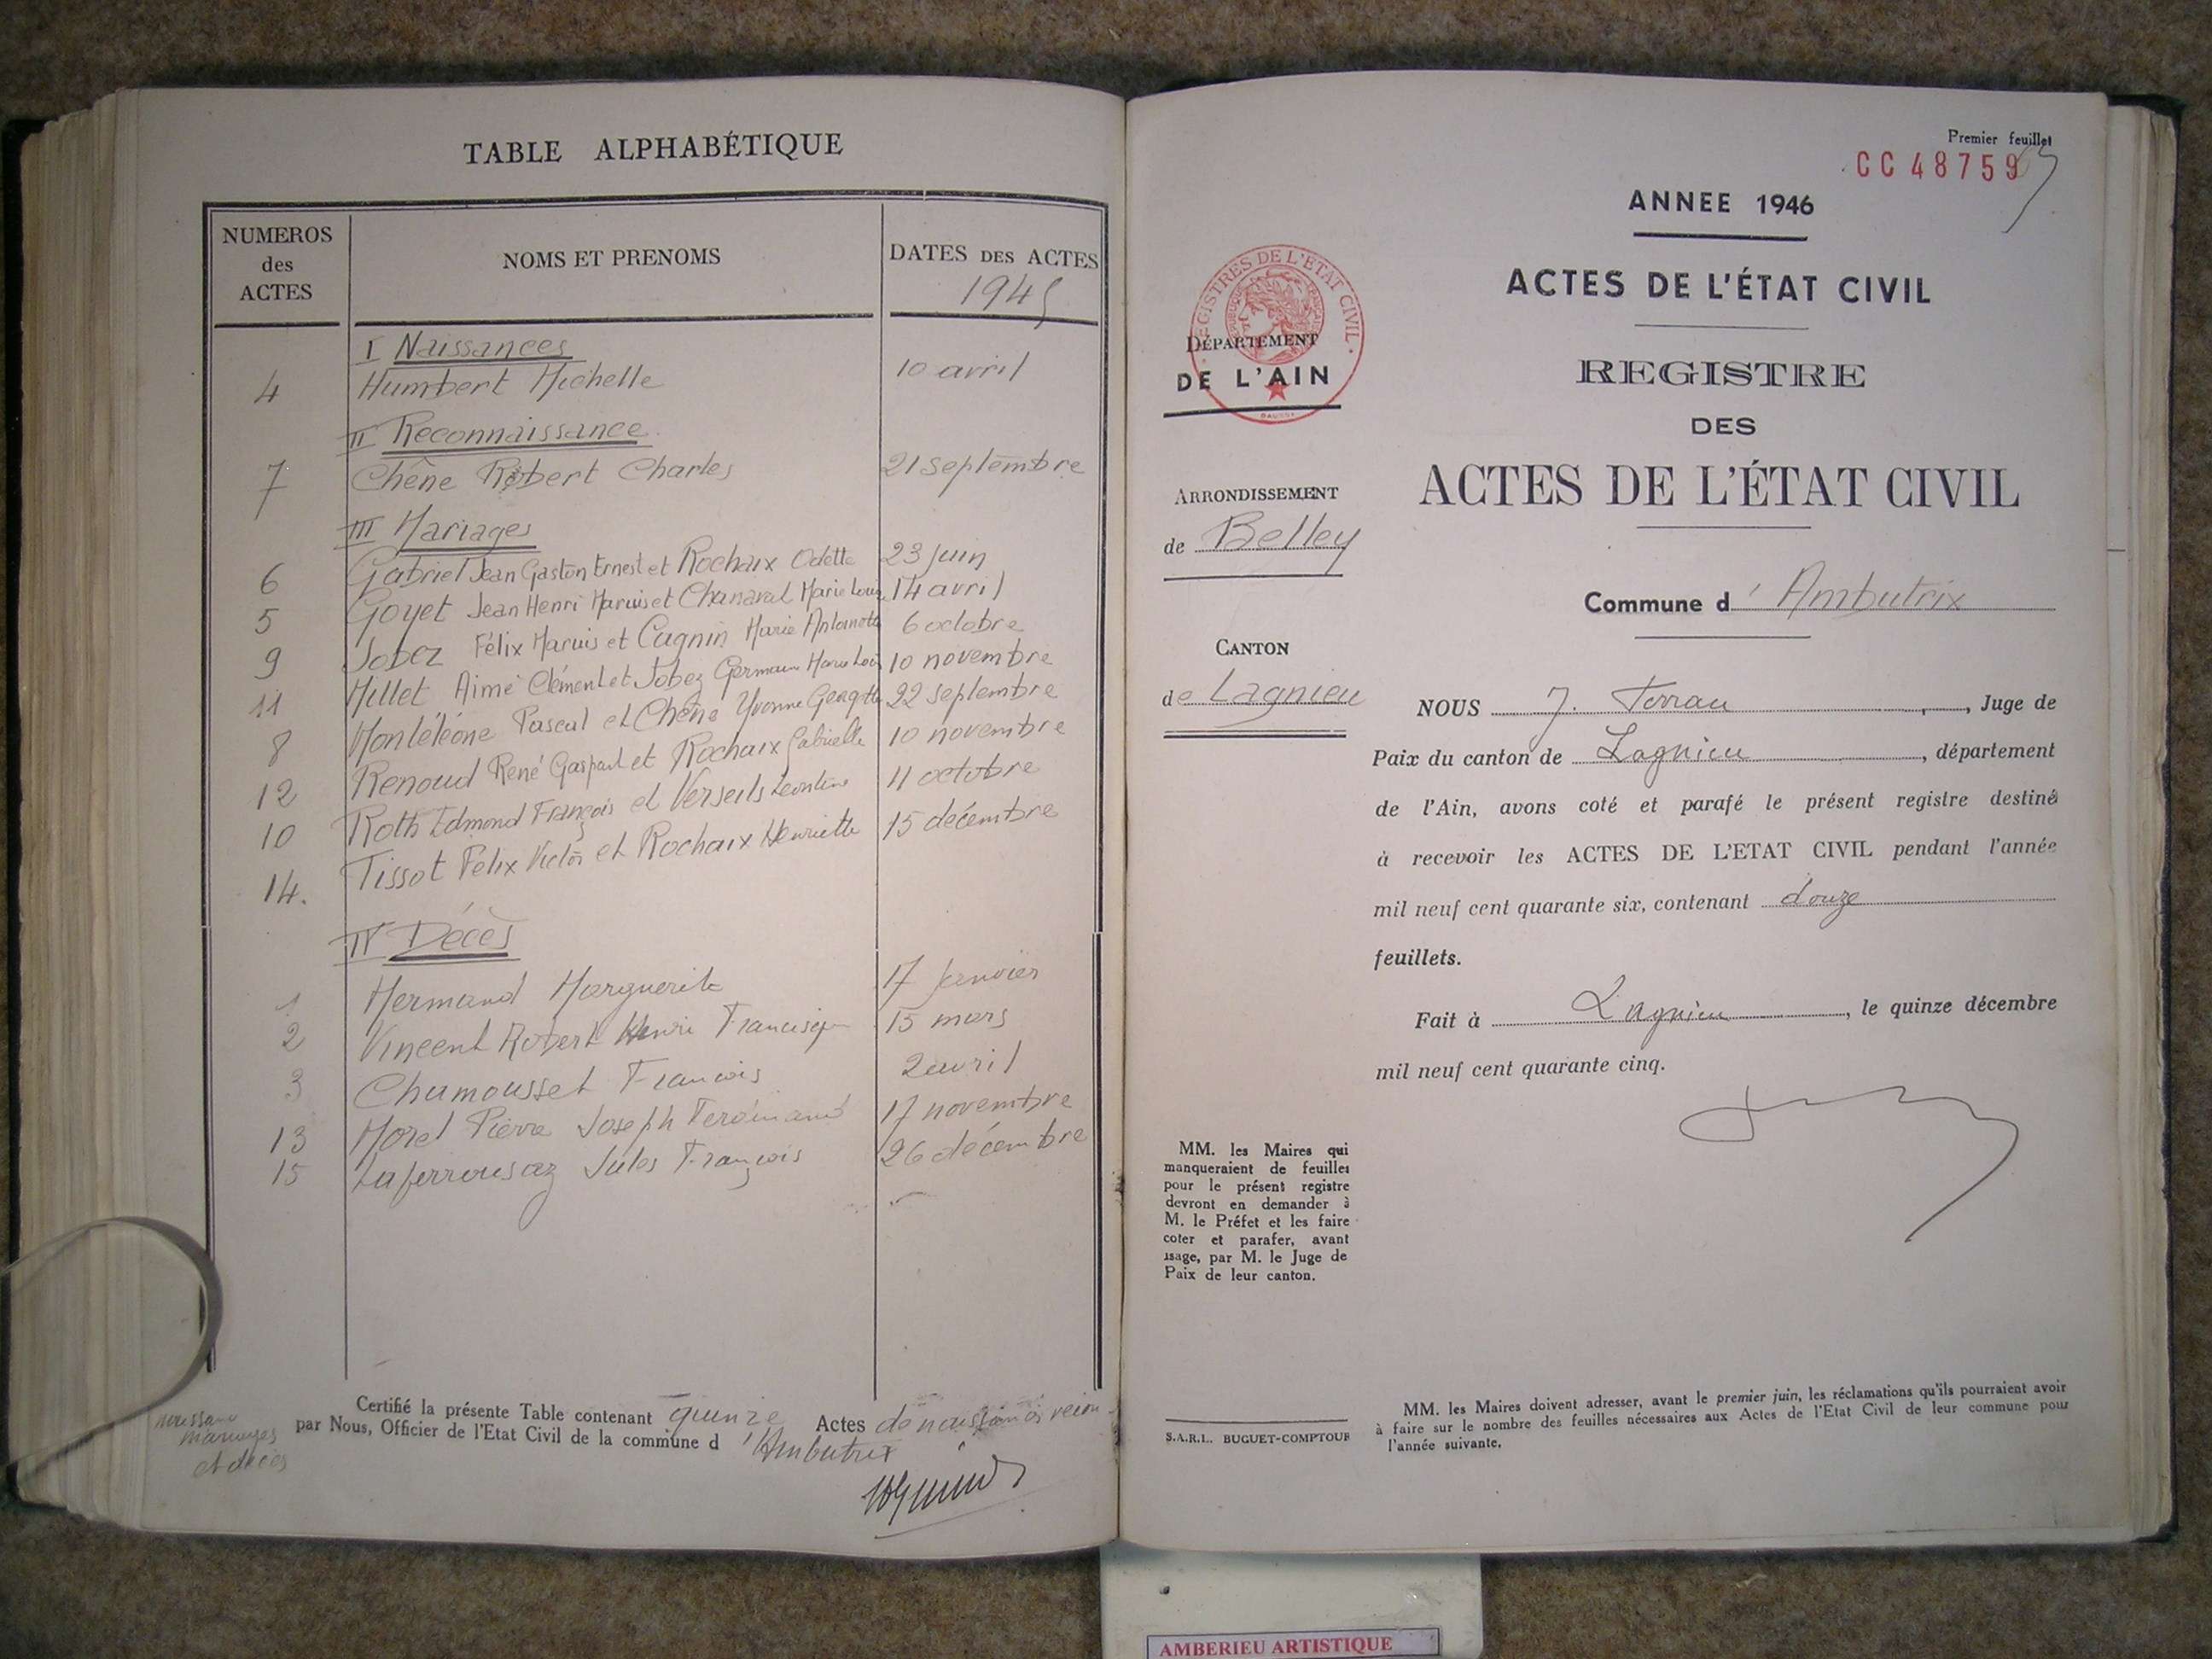 TABLE ALPHABÉTIQUE
NUMEROS des ACTES
NOMS ET PRENOMS
DATES DES ACTES
1945
I Naissances
4 Humbert Michelle 10 avril
II Reconnaissance
7 Chêne Robert Charles 21 septembre
III Mariages
6 Gabriel Jean Gaston Ernest et Rochaix Odette 23 juin
5 Goyet Jean Henri Marius et Chanaval Marie Louise 14 avril
9 Jobez Félix Marius et Cagnin Marie Antoinette 6 octobre
11 Millet Aimé Clément et Jobez Germaine Marie 10 novembre
8 Montéléone Pascal et Chêne Yvonne 22 septembre
12 Renoud René Gaspard et Rochaix Gabrielle 10 novembre
10 Roth Edmond François et Verseils Léontine 11 octobre
14. Tissot Félix Victor et Rochaix Henriette 15 décembre
IV Décès
1 Hermand Marguerite 17 Janvier
2 Vincent Robert Henri 15 mars
3 Chamousset François 2 avril
13 Morel Pierre Joseph Ferdinand 17 novembre
15 Laferrousaz Jules François 26 décembre
Certifié la présente Table contenant quinze Actes de naissances
par Nous, Officier de l'Etat Civil de la commune d 'Ambutrix
mariages
et décès
Premier feuillet
CC 48759
ANNEE 1946
ACTES DE L'ÉTAT CIVIL
REGISTRES DE L'ETAT CIVIL
REPUBLIQUE FRANÇAISE
DÉPARTEMENT
DE L'AIN
REGISTRE
DES
ACTES DE L'ÉTAT CIVIL
ARRONDISSEMENT
de Belley
Commune d 'Ambutrix
CANTON
de Lagnieu
NOUS J. , Juge de
Paix du canton de Lagnieu , département
de l'Ain, avons coté et parafé le présent registre destiné
à recevoir les ACTES DE L'ETAT CIVIL pendant l'année
mil neuf cent quarante six, contenant douze
feuillets.
Fait à Lagnieu , le quinze décembre
mil neuf cent quarante cinq.
MM. les Maires qui
manqueraient de feuilles
pour le présent registre
devront en demander à
M. le Préfet et les faire
coter et parafer, avant
usage, par M. le Juge de
Paix de leur canton.
S.A.R.L. BUGUET-COMPTOUR
MM. les Maires doivent adresser, avant le premier juin, les réclamations qu'ils pourraient avoir
à faire sur le nombre des feuilles nécessaires aux Actes de l'Etat Civil de leur commune pour
l'année suivante.
AMBERIEU ARTISTIQUE